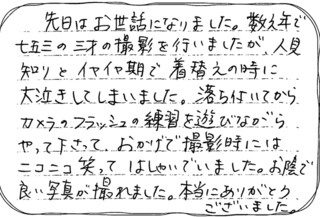 先日はお世話になりました。数え年で
七五三の三才の撮影を行いましたが、人見
知りとイヤイヤ期で着替えの時に
大泣きしてしまいました。落ち付いてから
カメラのフラッシュの練習を遊びながら
やって下さって、おかげで撮影時には
ニコニコ笑ってはしゃいでいました。お陰で
良い写真が撮れました。本当にありがとう
ございました。